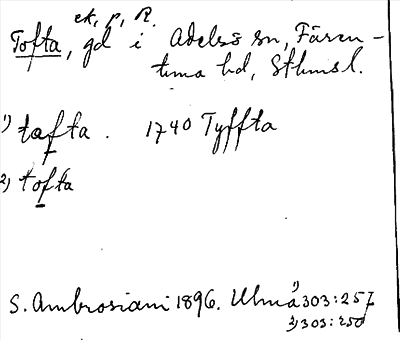 ek, p, R.
Tofta, gd i Adelsö sn, Fären-
tuna hd, Sthmsl.
1) tafta. 1740 Tyffta
2) tofta
S. Ambrosiani 1896. Ulmå 1) 303:257
2) 303:250